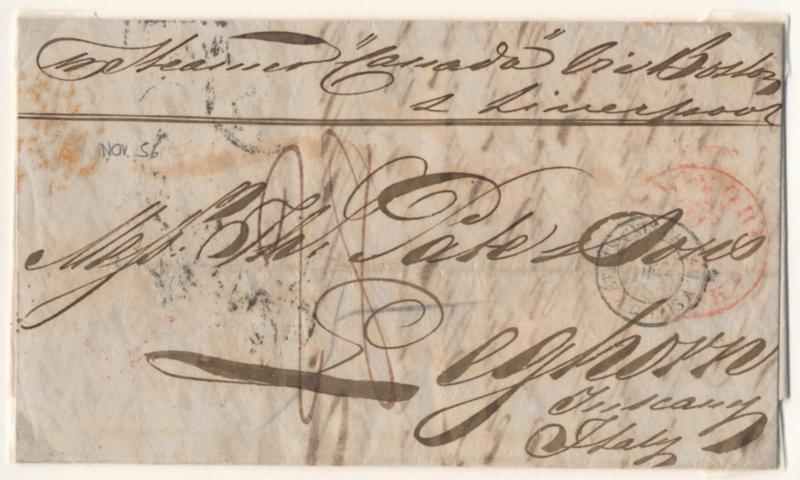 pr Steamer "Canada" Via Boston
& Liverpool
NOV. 56
Messrs. Th. Pate & Sons
Leghorn
Tuscany
Italy